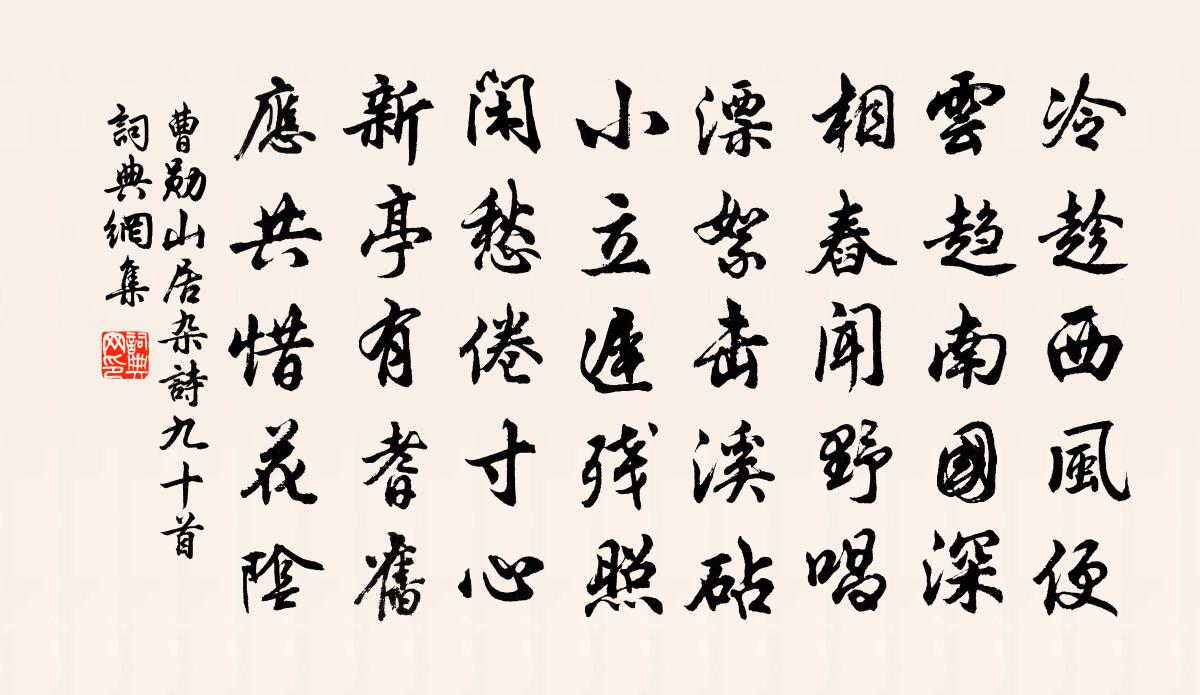 冷趁西風便
雲趋南國深
相舂聞野唱
漂絮击溪砧
小立遲残照
闲愁倦寸心
新亭有耆舊
應共惜花陰
曹勋山居杂詩九十首
詞典網集
詞典
网印